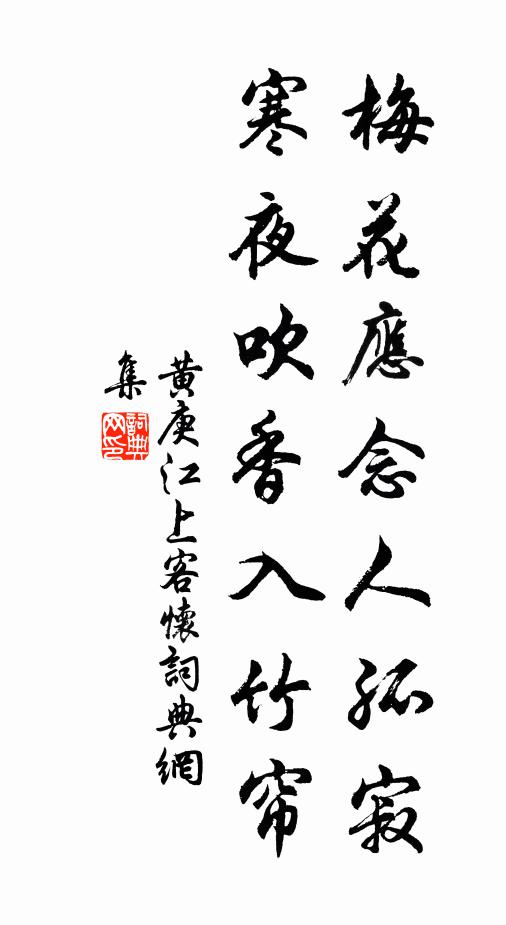 梅花應念人孤寂
寒夜吹香入竹帘
黄庚江上客懷詞典網
集
詞典
网印